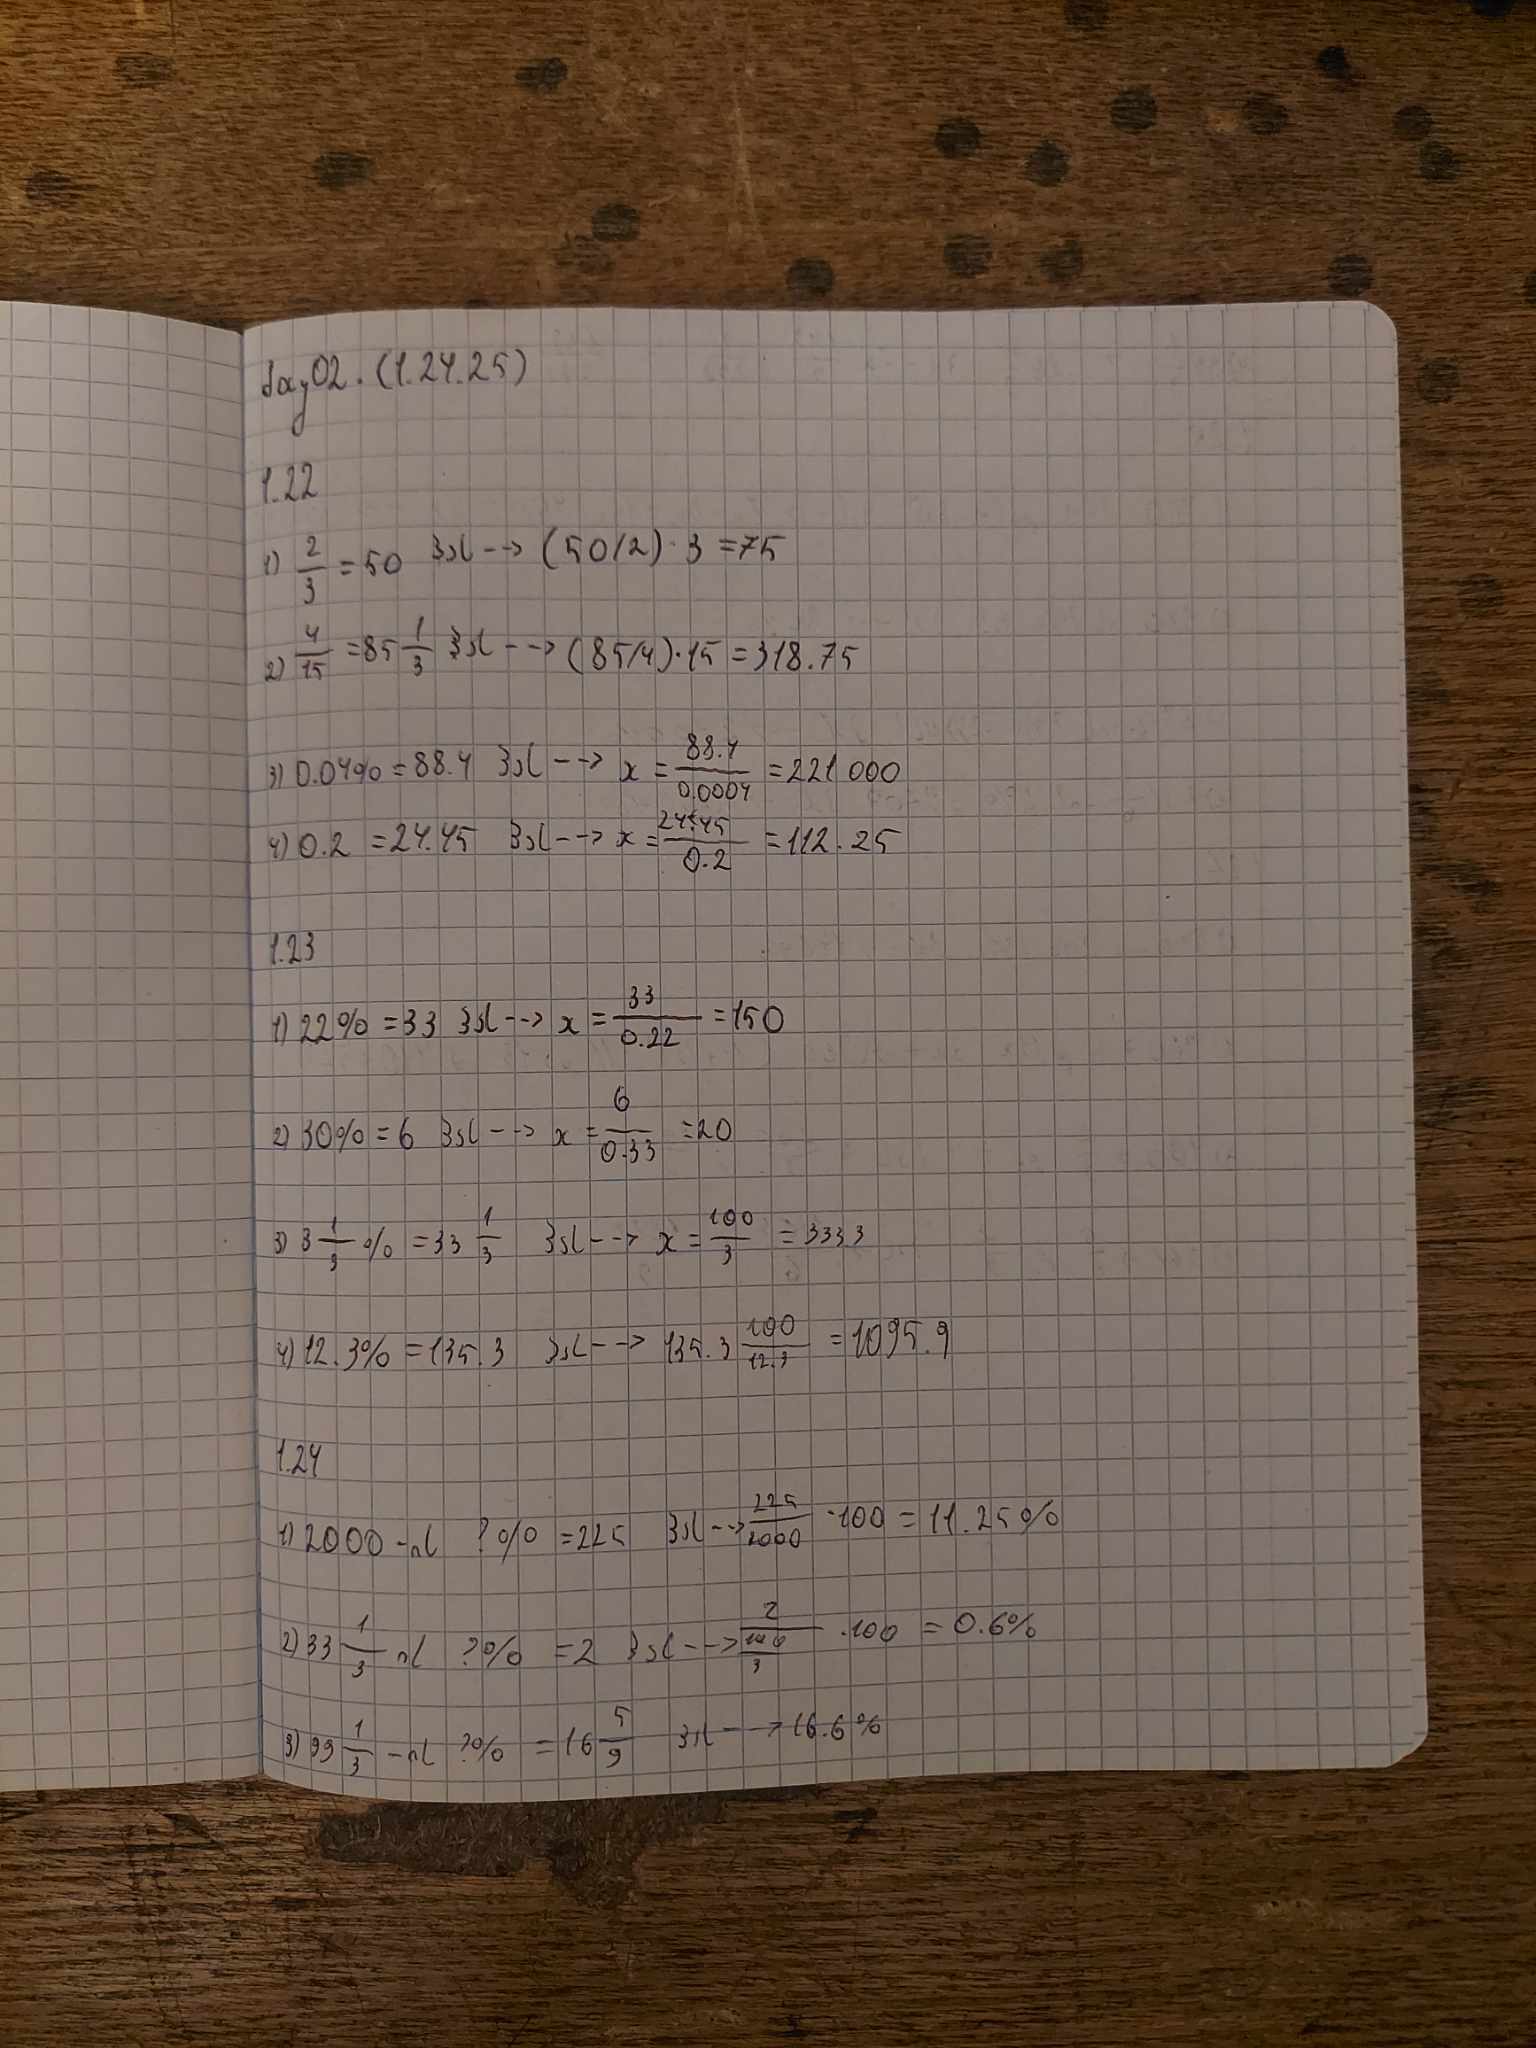 day02. (1.24.25)
1.22
1) 2/3 = 50 → (50/2)·3 = 75
2) 4/15 = 85 1/3 → (85/4)·15 = 318.75
3) 0.04% = 88.4 → x = 88.4/0.0004 = 221000
4) 0.2 = 24.45 → x = 24.45/0.2 = 112.25
1.23
1) 22% = 33 → x = 33/0.22 = 150
2) 30% = 6 → x = 6/0.33 = 20
3) 3 1/3 % = 33 1/3 → x = 100/3 = 3333
4) 12.3% = 135.3 → 135.3 100/12.3 = 1095.9
1.24
1) 2000 ?% = 225 → 225/2000 ·100 = 11.25%
2) 33 1/3 ?% = 2 → 2/(100/3) ·100 = 0.6%
3) 99 1/3 ?% = 16 5/9 → 16.6%